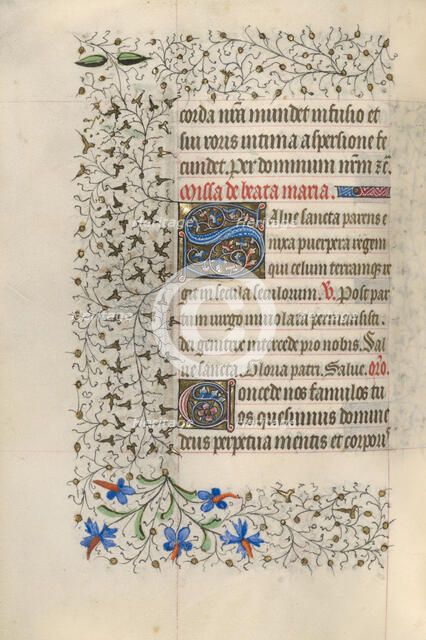 corda nr̃a mundet infusio et
sui roris intima aspersione fe
cundet. per dominum nr̃m zc̃.
missa de beata maria.
Salue sancta parens e
nixa puerpera regem
qui celum terramq; r
git in secula seculorum. V. Post par
tum uirgo inuiolata permansisti.
dei genitrix intercede pro nobis. Sal
ue sancta. Gloria patri. Salue. or̃o.
Concede nos famulos tu
os quesumus domine
deus perpetua mentis et corporis
Heritage
Heritage
Images